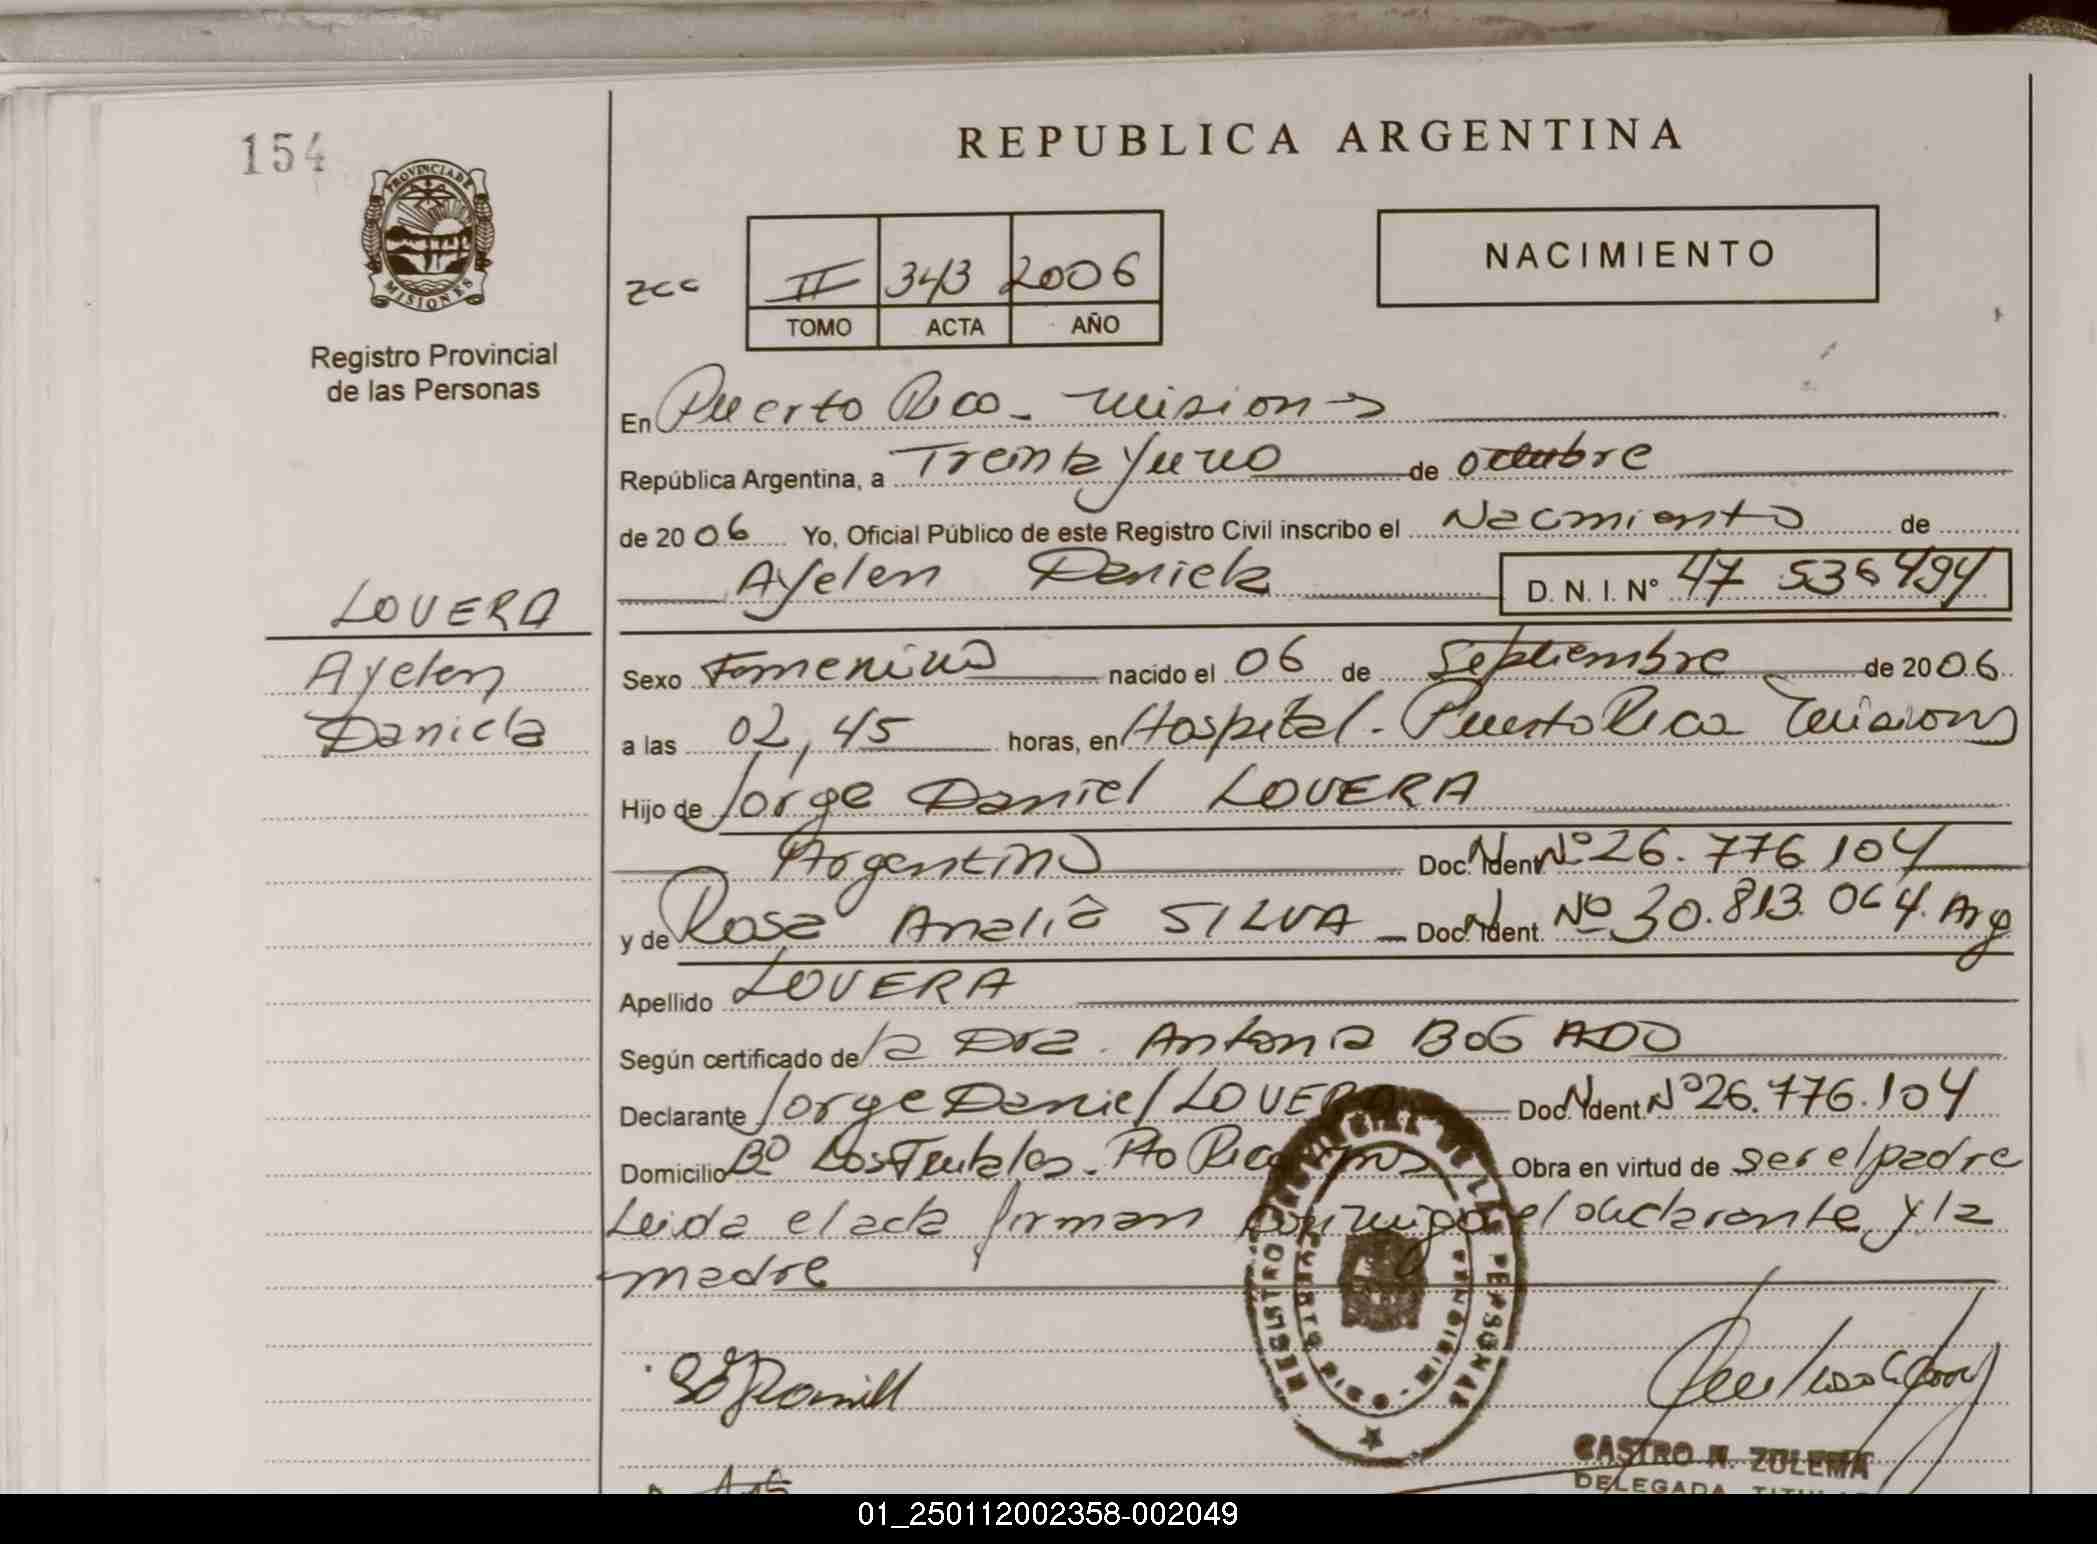 154
PROVINCIA DE
MISIONES
Registro Provincial
de las Personas
REPUBLICA ARGENTINA
NACIMIENTO
zcc
II 343 2006
TOMO ACTA AÑO
En Puerto Rico - Misiones
República Argentina, a Treinta y uno de octubre
de 2006 Yo, Oficial Público de este Registro Civil inscribo el Nacimiento de
Ayelen Daniela D. N. I. N° 47 536 494
LOVERA
Ayelen
Daniela
Sexo Femenino nacido el 06 de Septiembre de 2006
a las 02,45 horas, en Hospital - Puerto Rico Misiones
Hijo de Jorge Daniel LOVERA
Argentino Doc. Ident N° 26.776.104
y de Rosa Analia SILVA Doc. Ident. Nº 30.813.064. Arg
Apellido LOVERA
Según certificado de la Dra. Antonia BOGADO
Declarante Jorge Daniel LOVERA Doc. Ident. N° 26.776.104
Domicilio Bº Los Pto Rico Obra en virtud de ser el padre
Leida el acta firman conmigo el declarante y la
madre
REGISTRO PROVINCIAL DE LAS PERSONAS
PUERTO RICO - MISIONES
CASTRO N. ZULEMA
DELEGADA TITULAR
01_250112002358-002049